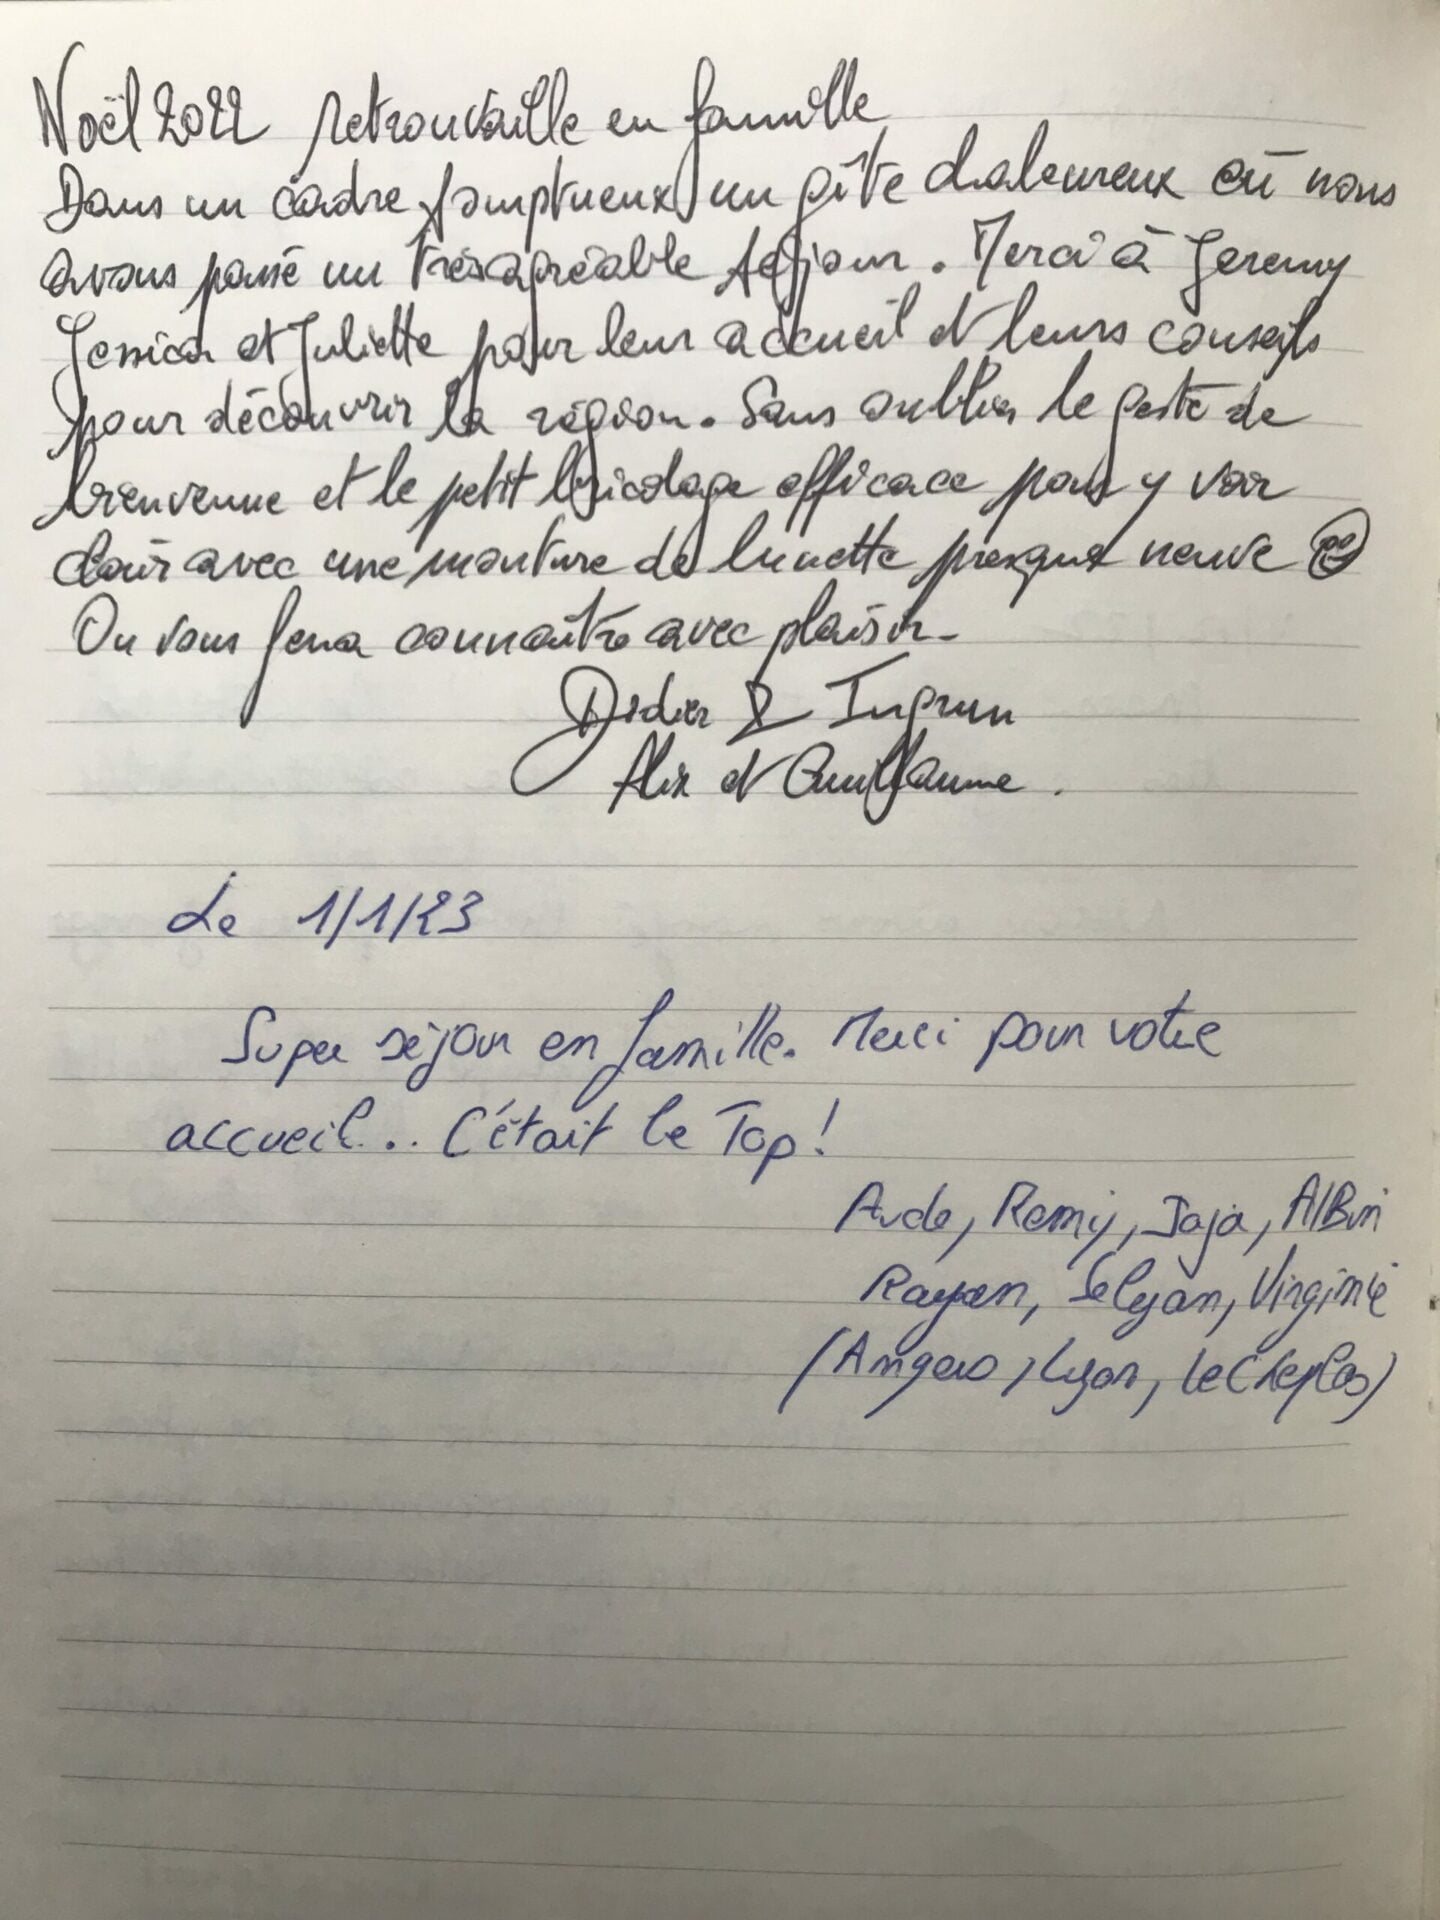 Noël 2022 retrouvaille en famille
Dans un cadre somptueux, un gîte chaleureux où nous
avons passé un très agréable séjour. Merci à Jeremy
Jessica et Juliette pour leur accueil et leurs conseils
pour découvrir la région. Sans oublier le geste de
bienvenue et le petit bricolage efficace pour y voir
clair avec une monture de lunette presque neuve
On vous fera connaître avec plaisir.
Didier & Ingrun
Alix et Guillaume.
Le 1/1/23
Super séjour en famille. Merci pour votre
accueil... C'était le Top!
Aude, Remy, Jaja, Albin
Rayan, Selyan, Virginie
(Angers, Lyon,